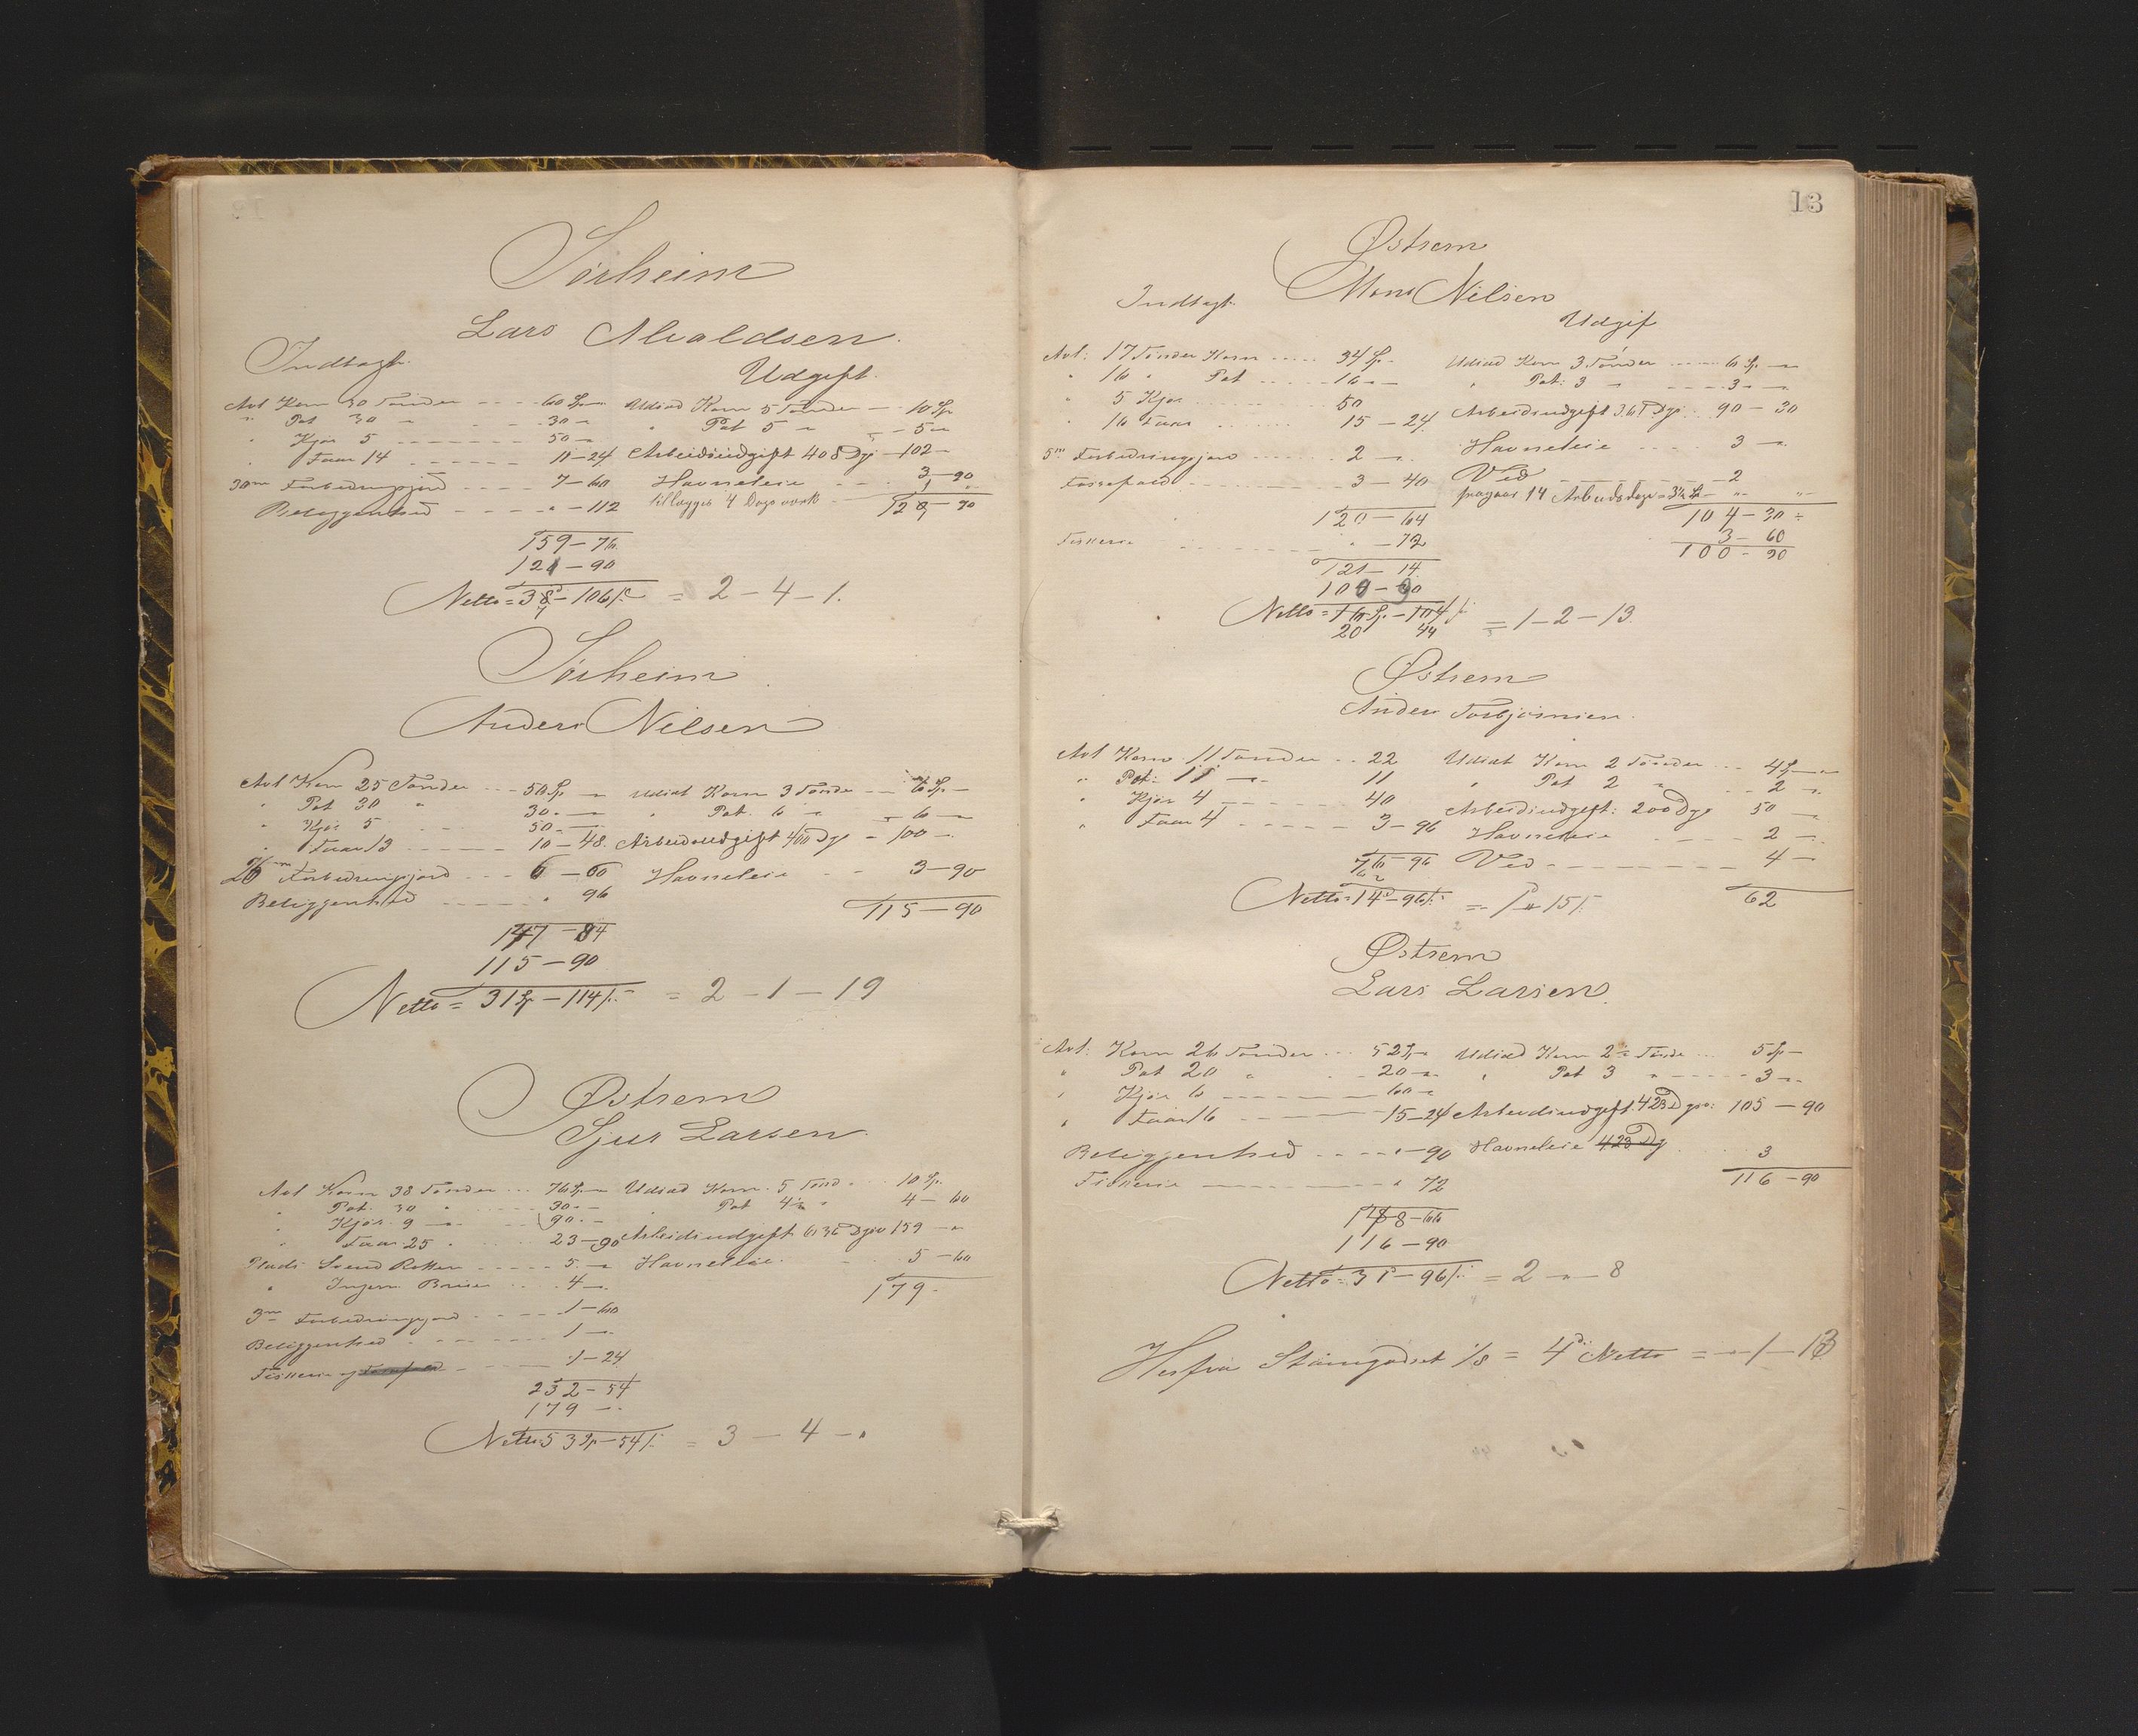 Sørheim
Lars Alvaldsen.
Indtægt. Udgift.
Avl Korn 30 Tønder 60 Sp Udsæd Korn 5 Tønder 10 Sp
" Pot 30 " 30 " Pot 5 " 5
" Kjør 5 50 Arbeidsudgift 408 Dg 102
" Faar 14 11-24 Havneleie 3-90
30m Forbedringsjord 7-60 tillægges 4 Dags
Beliggenhed " - 112 121-90
159-76
121-90
Netto = 38-106 = 2-4-1.
Sørheim
Anders Nilsen
Avl Korn 25 Tønder 50 Sp Udsæd Korn 3 Tønde 6 Sp
" Pot 30 " 30 " Pot. 6 " 6
" Kjør 5 50 Arbeidsudgift 400 Dg 100
" Faar 13 10-48. Havneleie 3-90
26m Forbedringsjord 6-60 115-90
Beliggenhed " 96
147-84
115-90
Netto = 31 Sp-114 = 2-1-19
Østrem
Sjur Larsen.
Avl Korn 38 Tønder 76 Sp Udsæd Korn. 5 Tønd 10 Sp.
" Pot. 30 " 30 Pot 4½ " 4-60
" Kjør. 9 90 Arbeidsudgift 636 Dgv 159
" Faar 25 23-90 Havneleie 5-60
Plads Svend 5 179
" Ingem. 4
3m Forbedringsjord 1-60
Beliggenhed 1
Fiskerie og 1-24
232-54
179
Netto 53 Sp-54 = 3-4-"
13
Østrem
Mons Nilsen
Indtægt. Udgif
Avl: 17 Tønder Korn 34 Sp Udsæd Korn 3 Tønder 6 Sp
" 16 " Pot 16 " Pot: 3 " 3
" 5 Kjør 50 Arbeidsudgift 361 Dgv 90-30
" 16 Faar 15-24 Havneleie 3
5m Forbedringsjord 2 Ved 2
Fossefald 3-40 fragaar 14 Arbeidsdage = 3½ Sp
120-64 104-30
Fiskerie " -72 3-60
121-14 100-90
100-90
Netto = 16 Sp-104 = 1-2-13.
20 44
Østrem
Anders Torbjørnsen.
Avl Korn 11 Tønder 22 Udsæt Korn 2 Tønder 4 Sp
" Pot: 11 11 " Pot 2 " 2
" Kjør 4 40 Arbeidsudgift: 200 Dg 50
" Faar 4 3-96 Havneleie 2
76-96 Ved 4
62
Netto = 14-96 = 1 " 15 62
Østrem
Lars Larsen.
Avl: Korn 26 Tønder 52 Sp Udsæd Korn 2½ Tønde 5 Sp
" Pot 20 " 20 " Pot 3 " 3
" Kjør 6 60
" Faar 16 15-24 Arbeidsudgift 423 Dgv: 105-90
Beliggenhed " -90 Havneleie 423 Dg 3
Fiskerie " 72 116-90
148-66
116-90
Netto = 31-96 = 2-"-8
Herfra Stamgodset 1/8 = 4 Netto = "-1-13